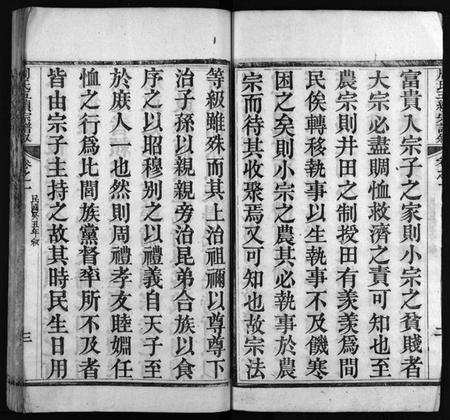 富貴入宗子之家則小宗之貧賤者
大宗必盡賙恤救濟之責可知也至
農宗則井田之制授田有羨羨爲間
民俟轉移執事以生執事不及饑寒
困之矣則小宗之農其必執事於農
宗而待其收聚焉又可知也故宗法
等級雖殊而其上治祖禰以尊尊下
治子孫以親親旁治昆弟合族以食
序之以昭穆别之以禮義自天子至
於庶人一也然則周禮孝友睦婣任
恤之行爲比閭族黨督率所不及者
皆由宗子主持之故其時民生日用
三